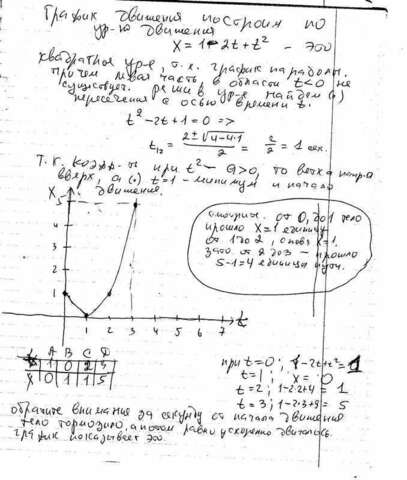 График движения построим по
ур-ю движения
X = 1 - 2t + t² - это
квадратное ур-е, т.к. график параболы.
причем левая часть, в области t<0 не
существует. решив ур-е найдем (·)
пересечения с осью времени t.
t² - 2t + 1 = 0 =>
t₁₂ = (2 ± √4-4·1)/2 = 2/2 = 1 сек.
Т. к. коэфф-т при t² - a>0, то ветка напра
вверх, а (·) t=1 - минимум и начало
движения.
X
5
4
3
2
1
0
1 2 3 4 5 6 7 t
смотрим. от 0, до 1 тело
прошло X=1 единицу
от 1 до 2, снова X=1.
зато от 2 до 3 - прошло
5-1=4 единицы пути.
A B C D
t 1 0 2 3
X 0 1 1 5
при t=0; 1-2t+t²=1
t=1; X=0
t=2; 1-2·2+4=1
t=3; 1-2·3+9=5
обратите внимание за секунду от начала движения
тело тормозило, а потом равно ускоренно двигалось.
график показывает это.